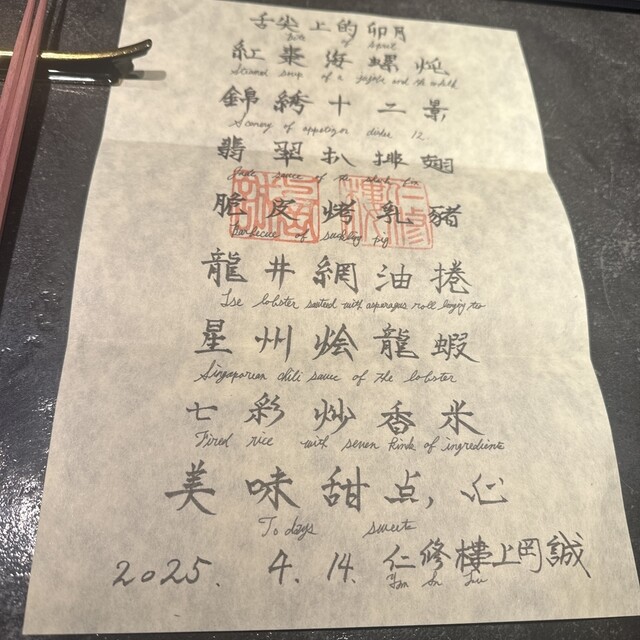 舌尖上的卯月
of spirit
紅棗海螺炖
Steamed soup of a jujube and the whelk
錦綉十二景
Scenery of appetizer dishe 12
翡翠扒排翅
Jade sauce of the shark fin
脆皮烤乳豬
Barbecue of suckling pig
龍井網油捲
Ise lobster sauteed with asparagus roll longjing tea
星州烩龍蝦
Singaporean chili sauce of the lobster
七彩炒香米
Fired rice with seven kinds of ingredients
美味甜点心
Todays sweets
2025. 4. 14. 仁修樓上岡誠